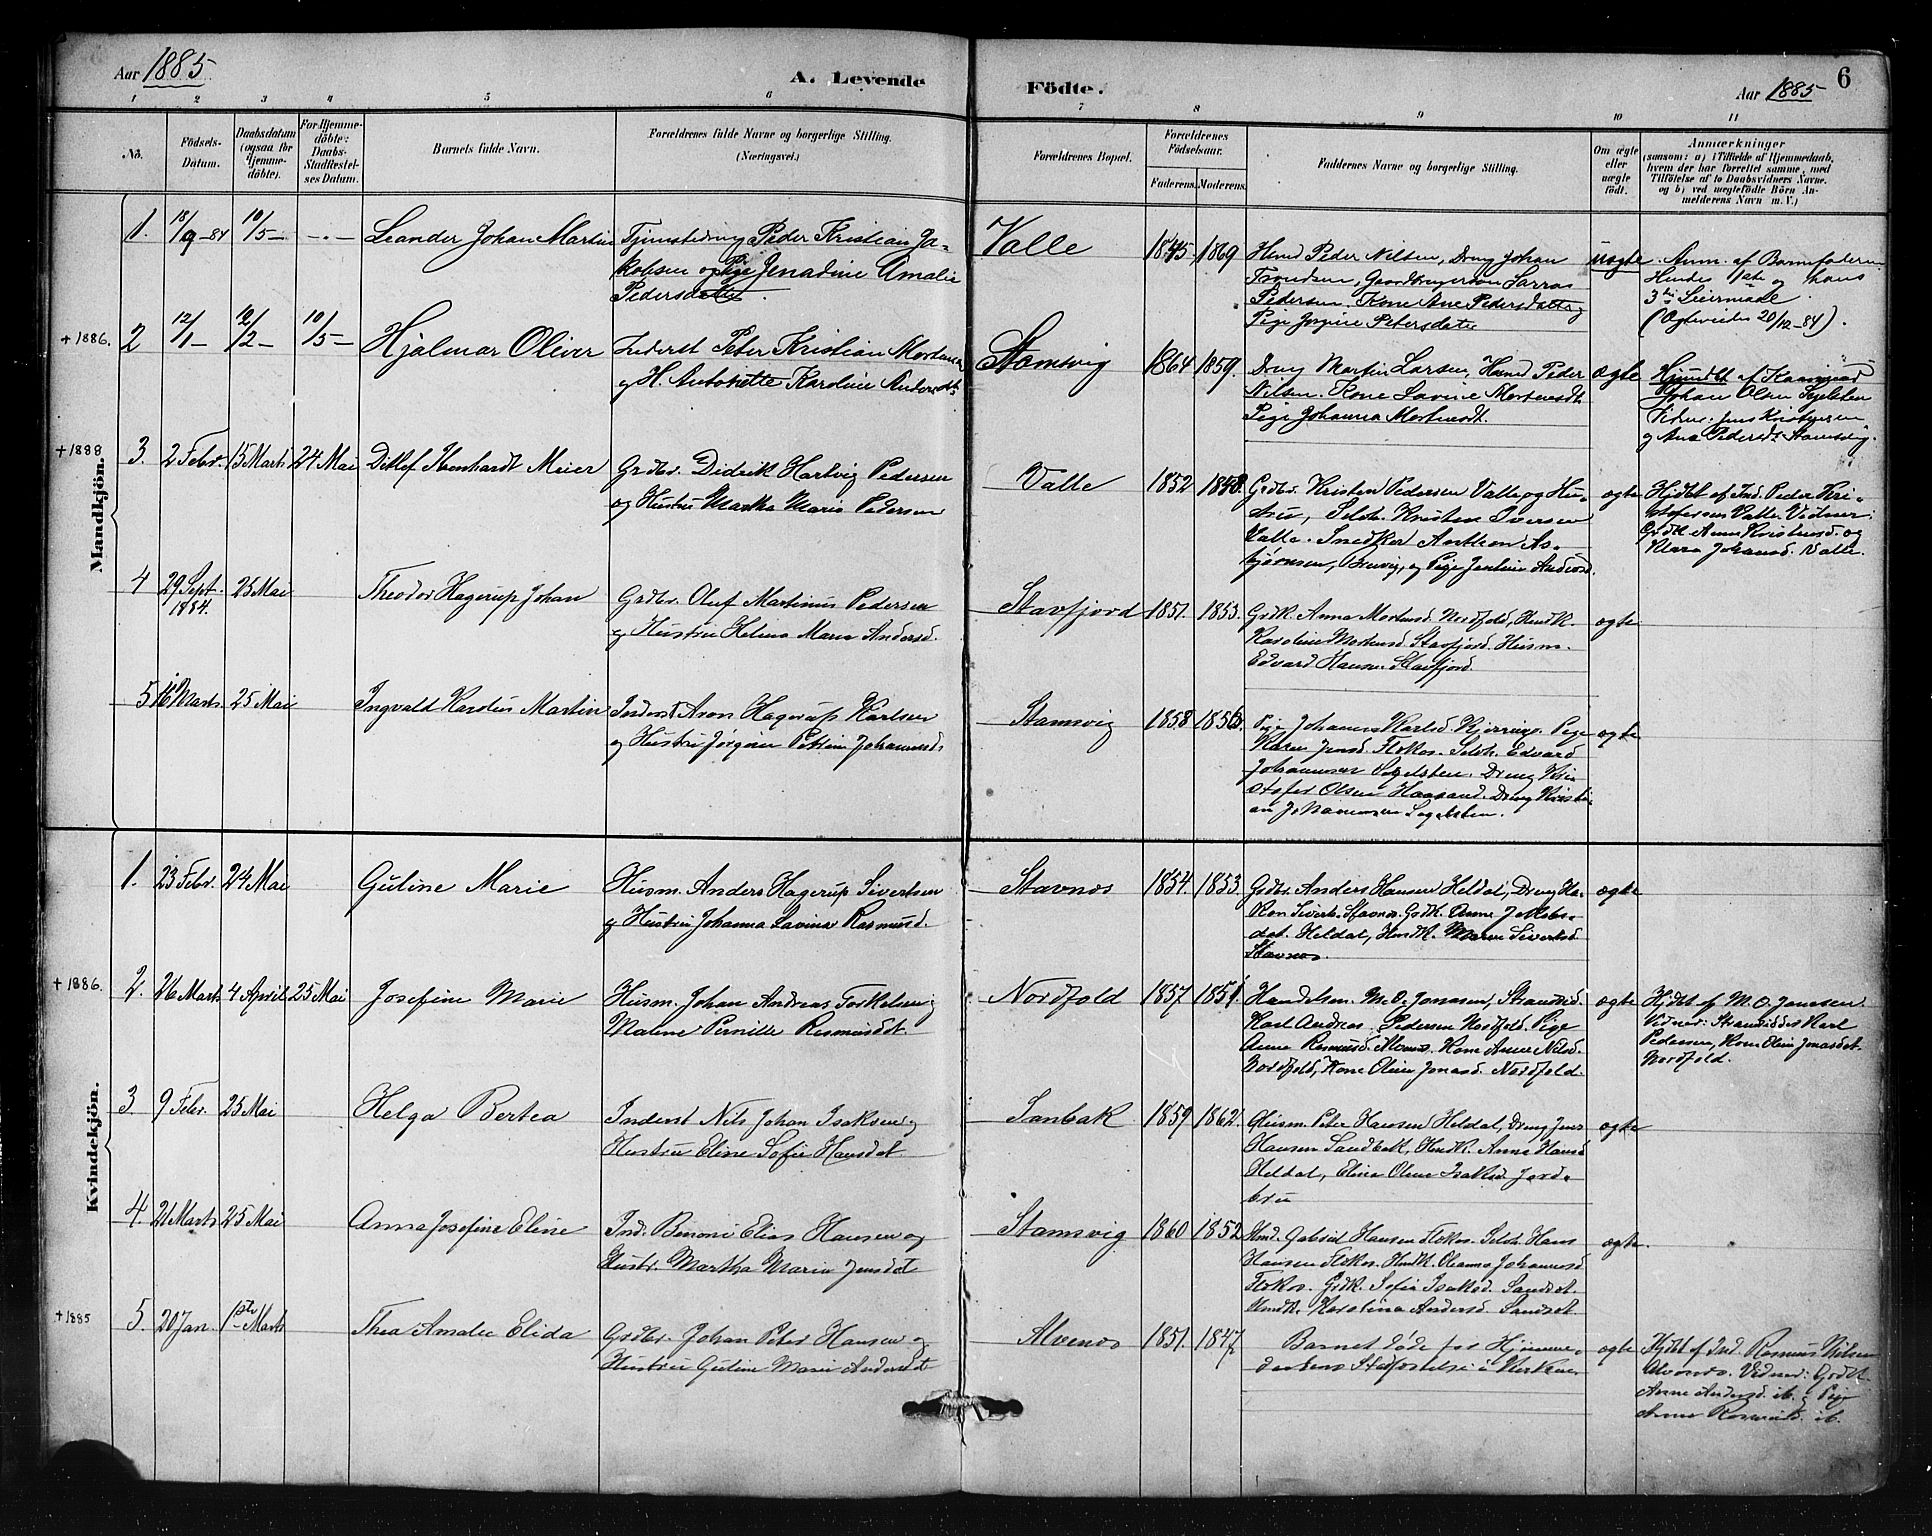 Aar 1885. A. Levende Födte. Aar 1885 6
1 2 3 4 5 6 7 8 9 10 11
No.
Födsels-
Datum.
Daabsdatum
(ogsaa for
Hjemme-
döbte).
For Hjemme-
döbte:
Daabs-
Stadfæstel-
ses Datum.
Barnets fulde Navn.
Forældrenes fulde Navne og borgerlige Stilling.
(Næringsvei.)
Forældrenes Bopæl.
Forældrenes
Födselsaar.
Faderens. Moderens.
Faddernes Navne og borgerlige Stilling.
Om ægte
eller
uægte
født.
Anmærkninger
(saasom: a) i Tilfælde af Hjemmedaab,
hvem der har forrettet samme, med
Tilföielse af to Daabsvidners Navne.
og b) ved uægtefödte Börn An-
melderens Navn m. V.)
Mandkjön.
1. 18/9-84 10/5- -"- Leander Johan Martin
Tjenestedreng Peder Kristian Ja-
kobsen og Pige Jenadine Amalie
Pedersdatter.
Valle 1845 1869
Husmd Peder Nilsen, Dreng Johan
Trondsen, Gaardbrugerson Larras
Pedersen. Kone Ane Pedersdatter
Pige Jorgine Petersdatter
uægte
Anm. af Barnefaderen
Hendes 1ste og hans
3die Leiermaal.
(Ogteviede 20/12-84).
+1886. 2 12/1- 12/2- 10/5- Hjalmar Oliver
Inderst Peter Kristian Mortensen
og H. Antonette Karoline Andersdt.
Stamsvig 1864 1859.
Dreng Martin Larsen, Husmd Peder
Nilsen. Kone Lavine Mortensdt.
Pige Johanna Mortensdt.
ægte
Hjmdbt af
Johan Olsen Segelsten
Vidner. Jens Kristensen
og Ana Pedersdt. Stamsvig.
+1888 3. 2 Febr. 15 Marts 24 Mai Ditlef Ibenhardt Meier
Grdbr. Didrik Hartvig Pedersen
og Hustru Martha Maria Pedersen
Valle 1852 1848.
Grdbr. Kristen Pedersen Valle og Hu-
stru, Seldr. Kristen Iversen
Valle. Snedker Anthon As-
bjørnsen, Brevig, og Pige Jentine Andersd.
ægte
Hjdbt af Ind. Peder Kri-
stofersen Valle. Vidner:
Grdk Anne Kristensd. og
Klara Johansd. Valle.
4 29 Sept. 25 Mai Theodor Hagerup Johan
1884.
Grdbr. Oluf Martinus Pedersen
og Hustru Helina Maria Andersd.
Stavfjord 1851. 1853.
Grdk. Anna Mortensd Nordfold, Husmdk.
Karoline Mortensd Stavfjord. Husm.
Edvard Hansen Stavfjord.
ægte
5 16 Marts 25 Mai Ingvald Karolus Martin
Inderst Aron Hagerup Karlsen
og Hustru Jørgine Petrine Johannesd.
Stamsvig 1858 1856.
Pige Johanna Karlsd Kjerringø. Pige
Karen Jensd. Flokos. Seldr. Edvard
Johannesen Segelsten. Dreng Kri-
stofer Olsen Haasand. Dreng Kristi-
an Johannesen Segelsten.
ægte
Kvindekjön.
1. 23 Febr. 24 Mai Guline Marie
Husm. Anders Hagerup Sivertsen
og Hustru Johanna Lavina Rasmusd.
Stavnes 1854. 1853.
Grdbr. Anders Hansen Heldal, Dreng Ha-
kon Siverts. Stavnes. Grdk. Anne Jakobs-
dat. Heldal, Husmdk. Maren Sivertsd
Stavnes.
ægte
+1886. 2. 26 Marts 4 April 25 Mai Josefine Marie
Husm. Johan Andreas Torkelsen og
Maline Pernille Rasmusdt.
Nordfold 1857 1851.
Handelsm. M. O. Jonasen, Strandsid.
Karl Andreas Pedersen Nordfold. Pige
Anne Rasmusd. Alvenes. Kone Anne Nilsd.
Nordfold, Kone Oline Jonasd. Nordfold.
ægte
Hjdbt af M. O. Jonassen
Vidner: Strandsidder Karl
Pedersen, Kone Oline Jonasdt.
Nordfold.
3 9 Febr. 25 Mai Helga Bertea
Inderst Nils Johan Isaksen og
Hustru Eline Sofie Hansdt
Sanbak 1859 1862.
Husm. Peter Hansen Heldal, Dreng Jens
Hansen Sandbak, Husmdk. Anna Hansd
Heldal, Elina Oline Isaksd Jord-
bru
ægte
4. 21 Marts 25 Mai Anna Josefine Eline
Ind. Benoni Elias Hansen og
Hustr. Martha Maria Jensdt
Stamsvig 1860 1852
Husmd. Gabriel Hansen Flokos. Seldr. Hans
Hansen Flokos. Husmdk. Oleanna Johannesd
Flokos. Grdk. Sofia Isaksd. Sandset
Husmdk. Karolina Andersd. Sandset
ægte.
+1885 5. 20 Jan. 1ste Marts Thea Amalie Elida
Grdbr. Johan Peter Hansen og
Hustru Guline Marie Andersdt
Alvenes 1851. 1847.
Barnet døde før Hjemme-
daabens Stadfæstelse i Kirken
ægte
Hjdbt af Ind. Rasmus Nilsen
Alvenes. Vidner: Grdk.
Anne Andersd. ib. og Pige
Anna Rasmusd. ib.